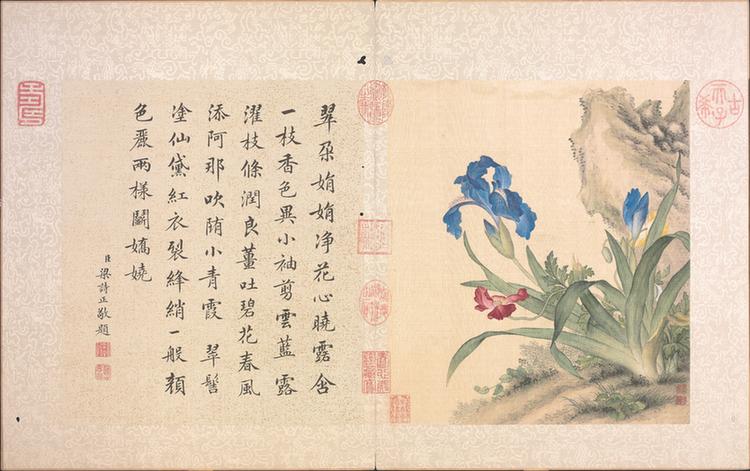 翠朶娟娟净花心曉露含
一枝香色異小袖剪雲藍露
濯枝條潤良薑吐碧花春風
添阿那吹随小青霞 翠髻
塗仙黛紅衣裂絳綃一般顏
色嚴兩樣鬭嬌嬈
臣梁詩正敬題
古
天子
希